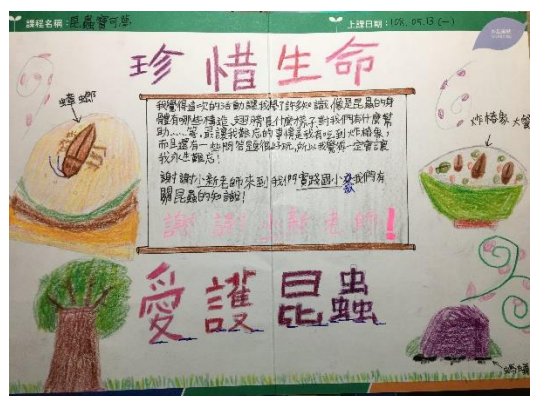 課程名稱:昆蟲寶可夢
上課日期:108.05.13(一)
珍惜生命
蟑螂
我覺得這次的活動讓我學了許多知識,像是昆蟲的身
體有哪些構造、翅膀長什麼樣子、對我們有什麼幫
助.....等,最讓我難忘的事情是我有吃到炸蟋蟀,
而且還有一些問答題很好玩,所以我覺得一定會讓
我永生難忘!
謝謝小新老師來到我們實踐國小教我們有
關昆蟲的知識!
謝謝小新老師!
炸蟋蟀大餐
愛護昆蟲
螞蟻